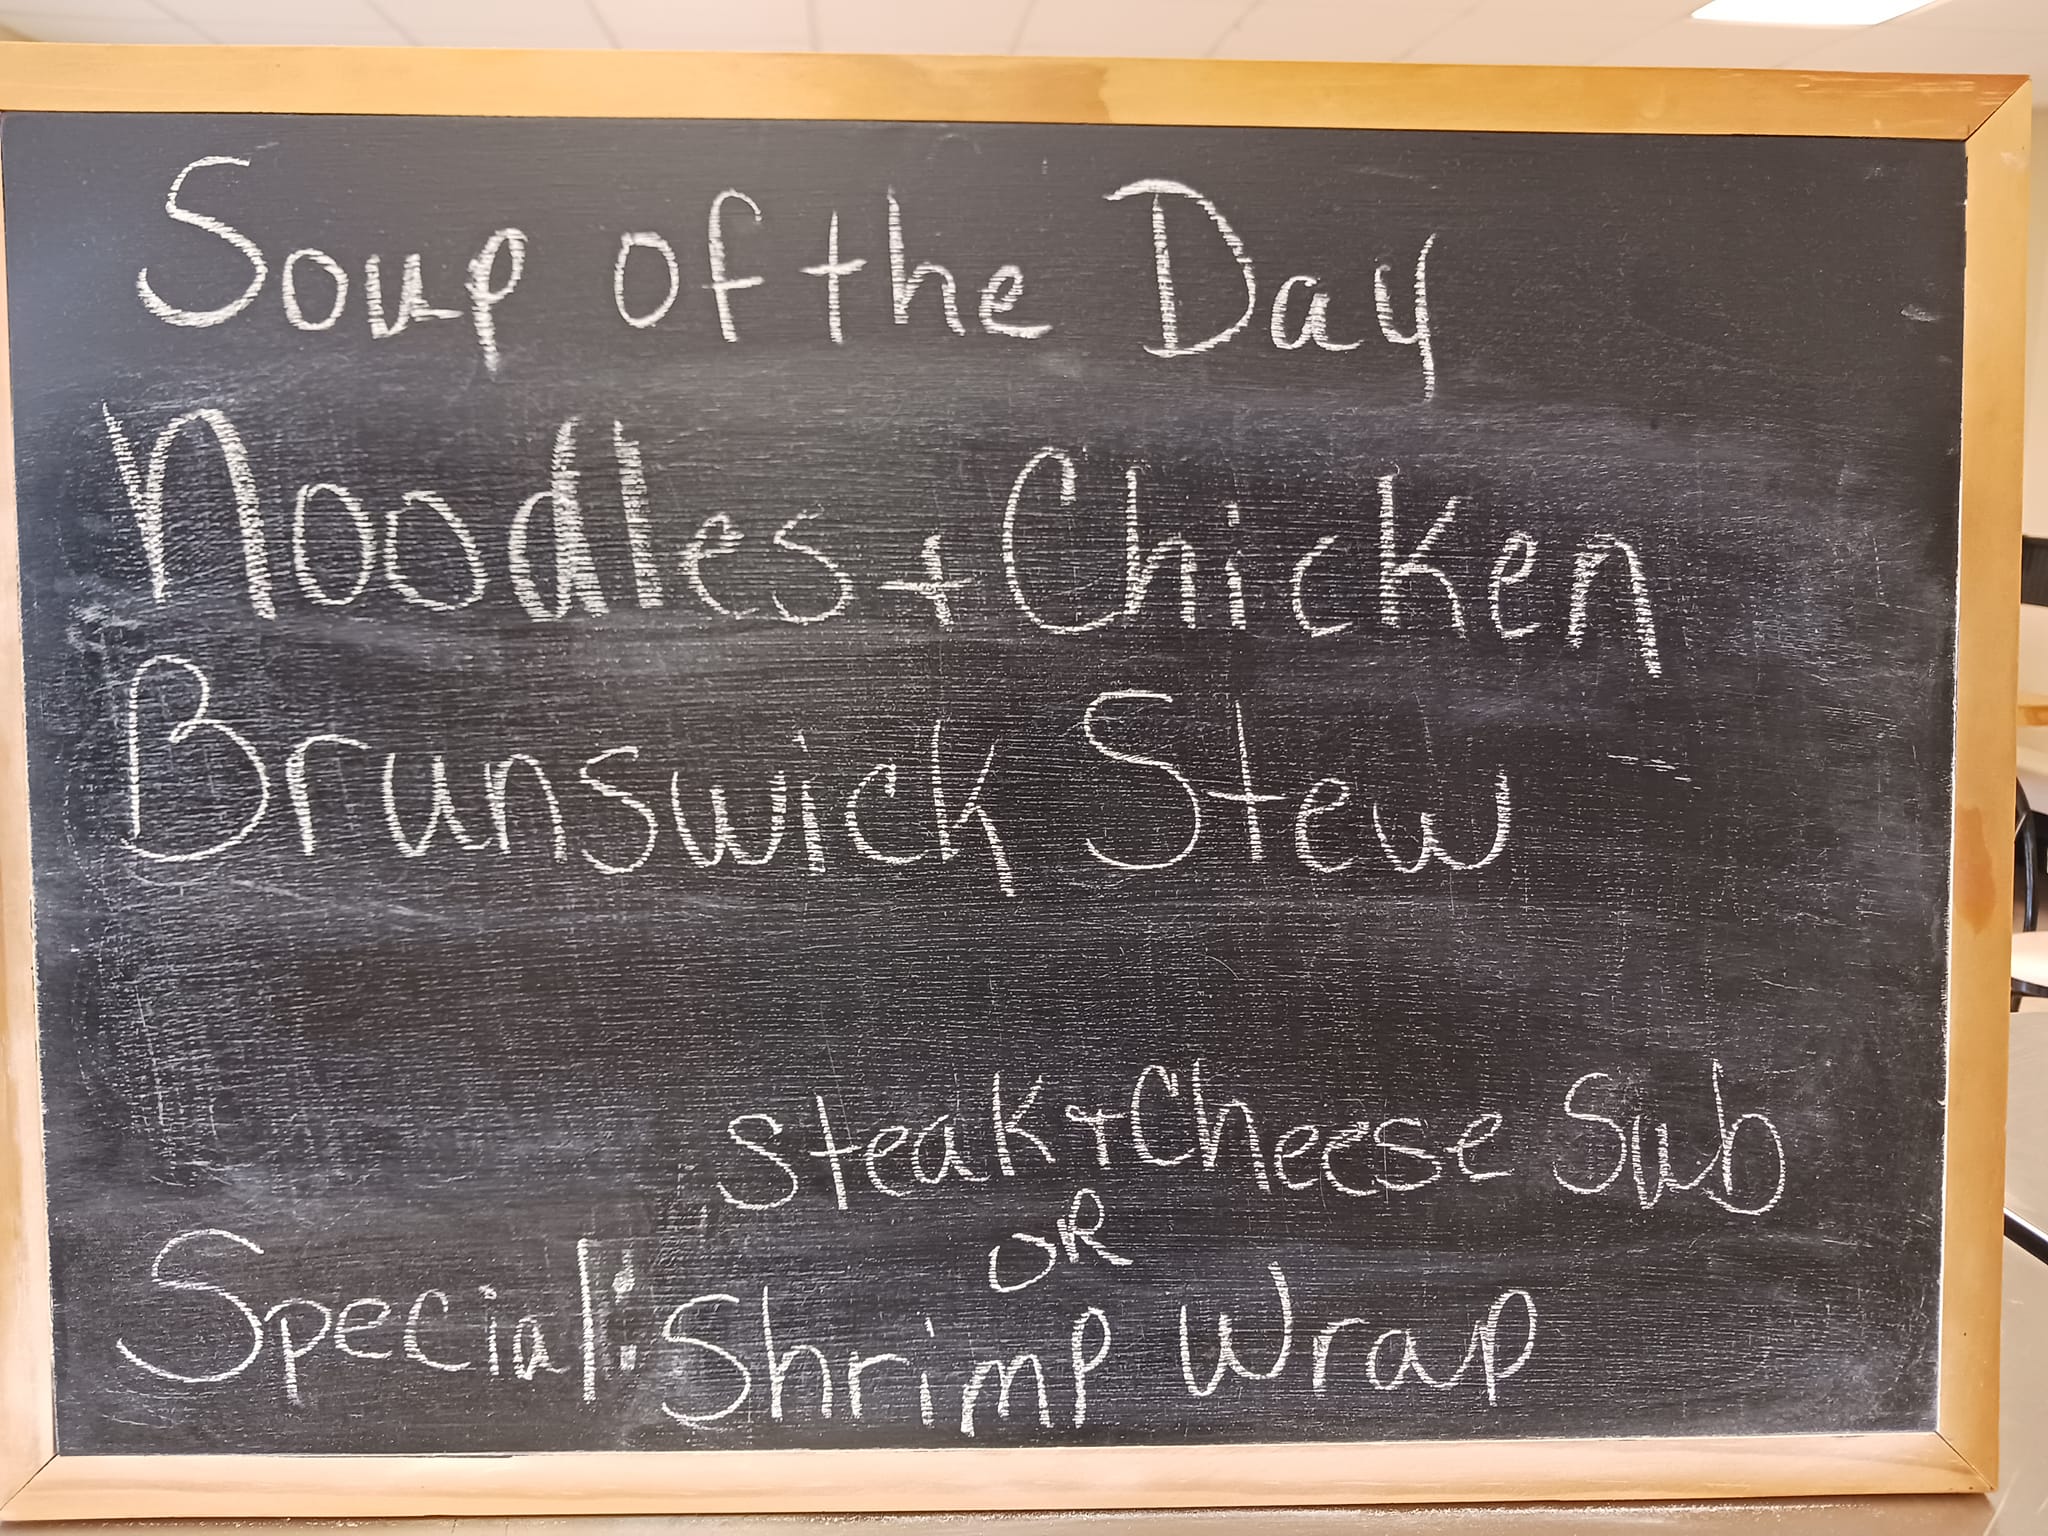 Soup of the Day
Noodles + Chicken
Brunswick Stew
Steak + Cheese Sub
OR
Special: Shrimp Wrap